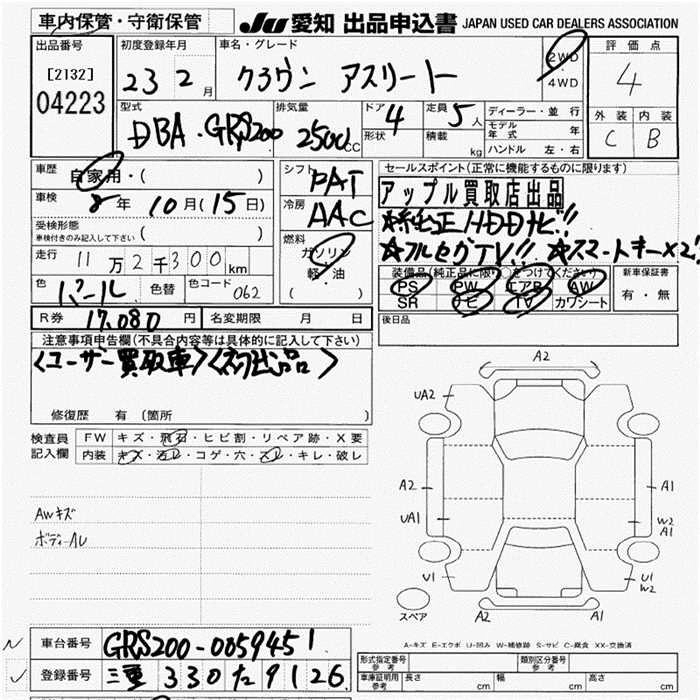 車内保管・守衛保管
JU 愛知 出品申込書 JAPAN USED CAR DEALERS ASSOCIATION
出品番号
[2132]
04223
初度登録年月
23 2 月
車名・グレード
クラウン アスリート
2WD
・
4WD
評価点
4
外装 内装
C B
型式
DBA・GRS200
排気量
2500cc
ドア 4
形状
定員 5 人
積載 kg
ディーラー・並行
モデル年式 年
ハンドル 左・右
車歴
自家用・( )
車検
8年 10月(15日)
受検形態
車検付きのみ記入して下さい ( )
走行
11万2千300km
色 パール 色替 色コード 062
シフト PAT
冷房 AAC
燃料
ガソリン
軽・油
( )
セールスポイント(正常に機能するものに限ります)
アップル買取店出品
☆純正HDDナビ!!
☆フルセグTV!! ☆スマートキー×2!
装備品(純正品に限り○をつけてください)
PS PW エアB AW
SR ナビ TV カワシート
新車保証書
有・無
R券 17,080 円 名変期限 月 日
後日品
注意事項申告欄(不具合内容等は具体的に記入して下さい)
<ユーザー買取車><初出品>
修復歴 有 (箇所 )
検査員記入欄
FW キズ・飛石・ヒビ割・リペア跡・X要
内装 キズ・汚レ・コゲ・穴・スレ・キレ・破レ
AWキズ
ボディーAU
A2
UA2
A2
UA1
U1
A1
W2
A1
U1
W2
スペア
A2
A1
A-キズ E-エクボ U-凹み W-補修跡 S-サビ C-腐食 XX-交換済
車台番号 GRS200-0059451
登録番号 三重 330 た 9126
形式指定番号
参考
類別区分番号
参考
車庫証明用
参考
長さ cm 幅 cm 高さ cm